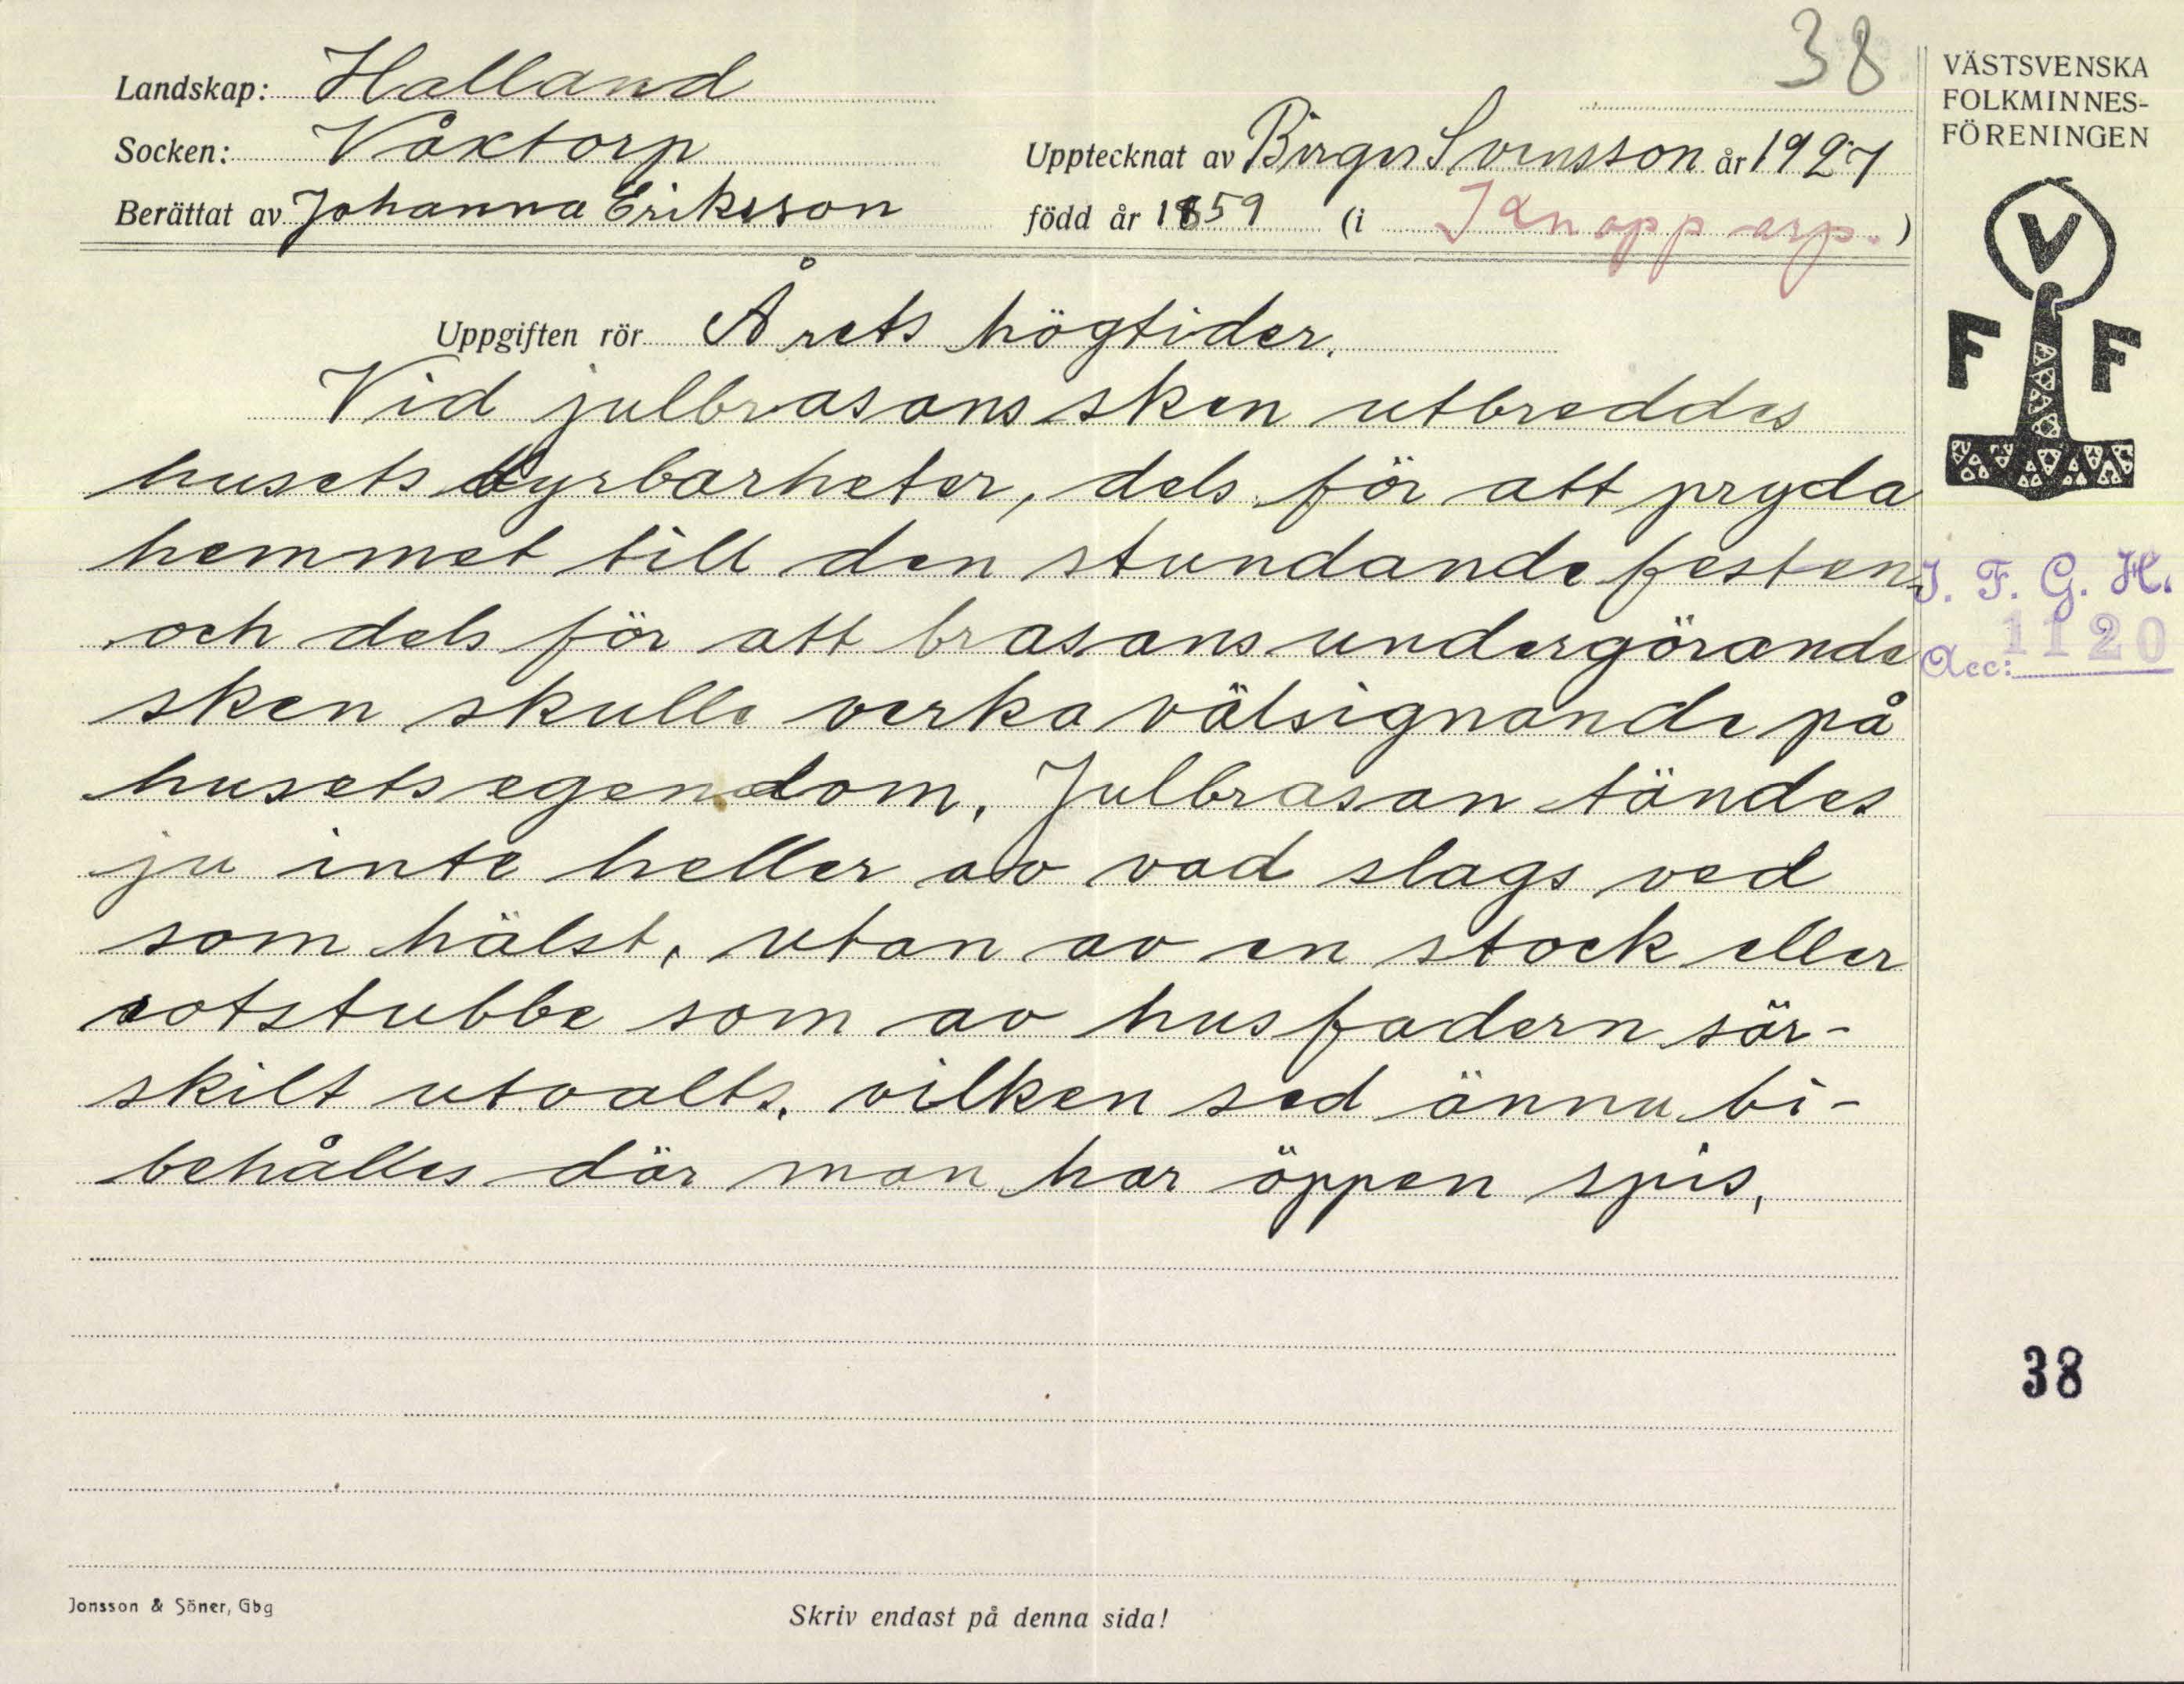 38
Landskap: Halland
Socken: Våxtorp
Upptecknat av Birger Svensson år 1927
Berättat av Johanna Eriksson
född år 1859 (i Knopparp.)
VÄSTSVENSKA
FOLKMINNES-
FÖRENINGEN
V
F F
Uppgiften rör Årets högtider.
Vid julbrasans sken utbreddes
husets dyrbarheter, dels för att pryda
hemmet till den stundande festen,
och dels för att brasans undergörande
sken skulle verka välsignande på
husets egendom. Julbrasan tändes
ju inte heller av vad slags ved
som hälst, utan av en stock eller
rotstubbe som av husfadern sär-
skilt utvalts, vilken sed ännu bi-
behålles där man har öppen spis.
I. F. G. H.
Acc: 1120
38
Jonsson & Söner, Gbg
Skriv endast på denna sida!